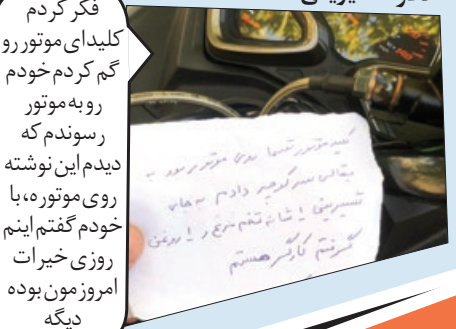 فکر کردم
کلیدای موتور رو
گم کردم خودم
رو به موتور
رسوندم که
دیدم این نوشته
روی موتوره، با
خودم گفتم اینم
روزی خیرات
امروزمون بوده
دیگه
کلید موتور شما روی موتور بود به
بقالی سر کوچه دادم به جای
شیرینی ۱ شانه تخم مرغ و ۱ روغن
گرفتم کارگر هستم